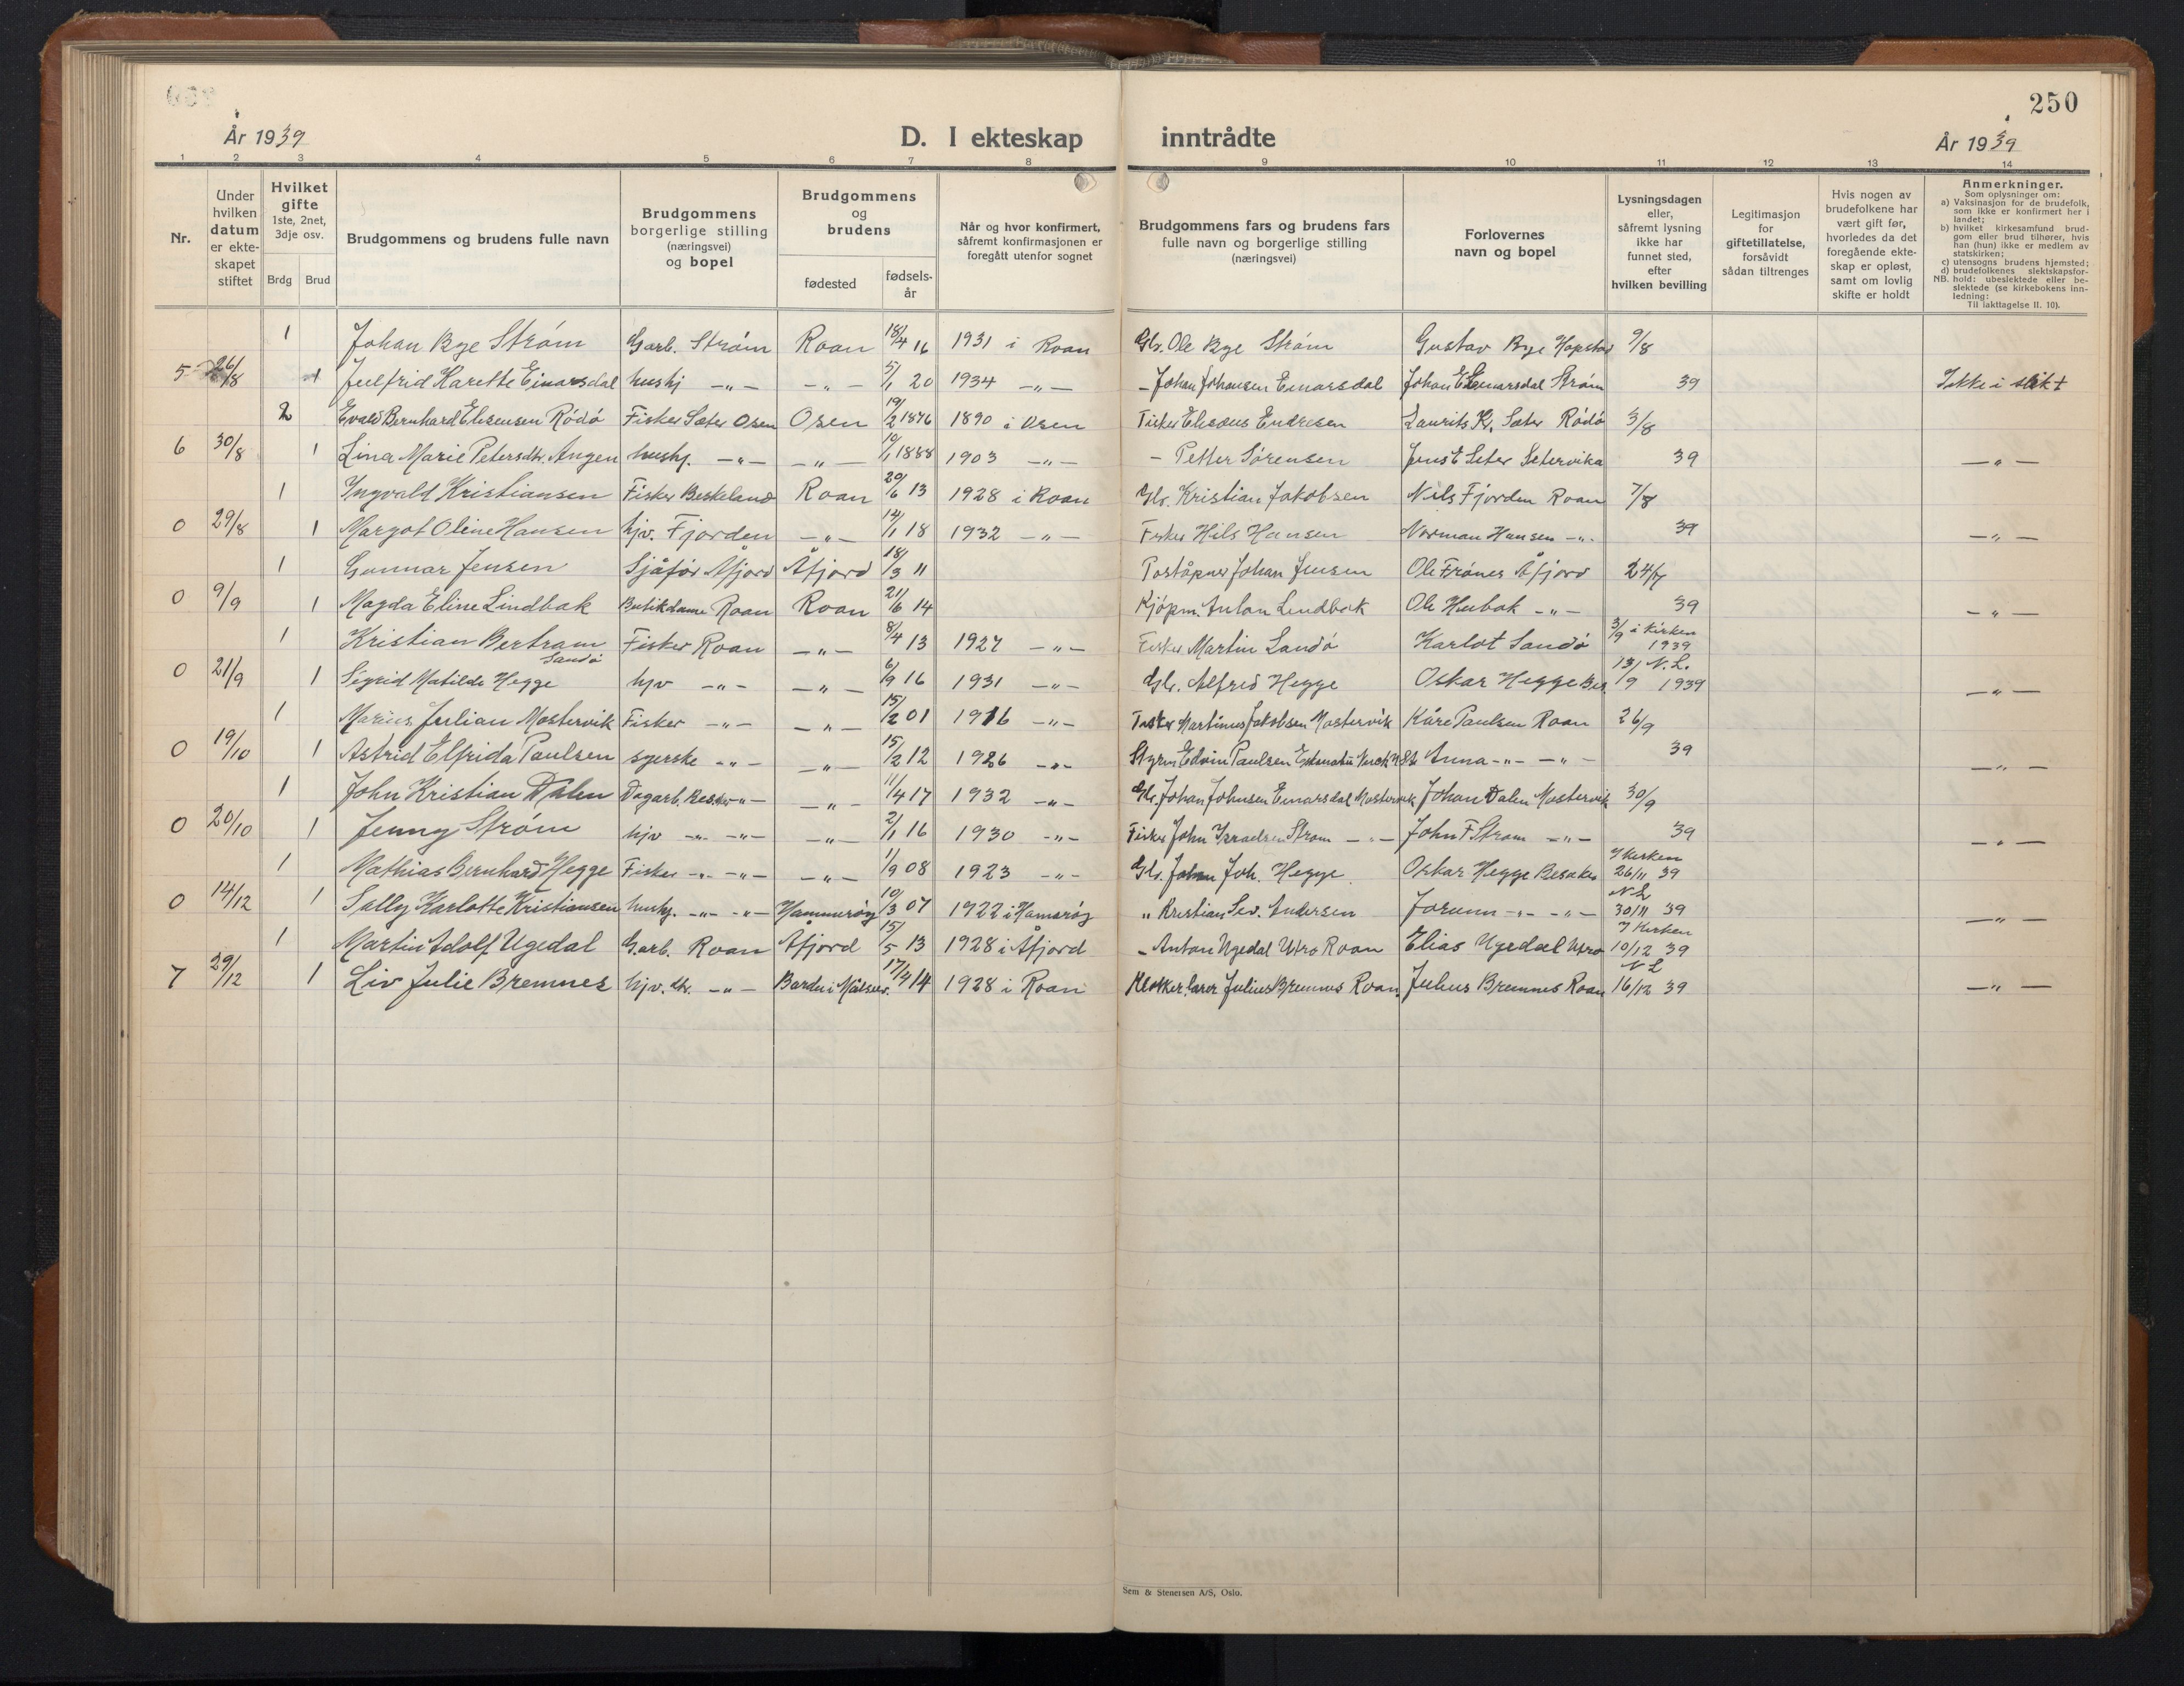 250
År 1939
D. I ekteskap inntrådte
År 1939
1 2 3 4 5 6 7 8 9 10 11 12 13 14
Nr.
Under hvilken datum er ekte-skapet stiftet
Hvilket gifte 1ste, 2net, 3dje osv.
Brdg Brud
Brudgommens og brudens fulle navn
Brudgommens borgerlige stilling (næringsvei) og bopel
Brudgommens og brudens
fødested
fødsels-år
Når og hvor konfirmert, såfremt konfirmasjonen er foregått utenfor sognet
Brudgommens fars og brudens fars fulle navn og borgerlige stilling (næringsvei)
Forlovernes navn og bopel
Lysningsdagen eller, såfremt lysning ikke har funnet sted, efter hvilken bevilling
Legitimasjon for giftetillatelse, forsåvidt sådan tiltrenges
Hvis nogen av brudefolkene har vært gift før, hvorledes da det foregående ekte-skap er opløst, samt om lovlig skifte er holdt
Anmerkninger.
Som oplysninger om:
a) Vaksinasjon for de brudefolk, som ikke er konfirmert her i landet;
b) hvilket kirkesamfund brud-gom eller brud tilhører, hvis han (hun) ikke er medlem av statskirken;
c) utensogns brudens hjemsted;
d) brudefolkenes slektskapsfor-hold: ubeslektede eller be-slektede (se kirkebokens inn-ledning:
NB. Til iakttagelse II. 10).
1 Johan Bye Strøm Garb. Strøm Roan 18/4 16 1931 i Roan Gbr. Ole Bye Strøm Gustav Bye Hopstad 9/8
5 26/8 1 Julfrid Harette Einarsdal hushj -"- -"- 5/1 20 1934 -"- - Johan Johansen Einarsdal Johan E Einarsdal Strøm 39 Ikke i slekt
2 Evald Bernhard Elisensen Rödö Fisker Sæter Osen Osen 19/2 1876 1890 i Osen Fisker Eliseus Endresen Laurits Kr. Sæter Rödö 3/8
6 30/8 1 Lina Marie Petersdtr. Angen hushj. -"- -"- 10/1 1888 1903 -"- - Petter Sørensen Jens E Seter Setervika 39 -"-
1 Ingvald Kristiansen Fisker Beskeland Roan 29/6 13 1928 i Roan Gbr. Kristian Jakobsen Nils Fjorden Roan 7/8
0 29/8 1 Margot Oline Hansen hjv. Fjorden -"- 14/1 18 1932 -"- Fisker Nils Hansen Norman Hansen -"- 39 -"-
1 Gunnar Jensen Sjåför Åfjord Åfjord 18/3 11 Poståpner Johan Jensen Ole Frönes Åfjord 24/7
0 9/9 1 Magda Eline Lindbak Butikdame Roan Roan 21/6 14 Kjöpm. Anton Lindbak Ole Hubak -"- 39 -"-
1 Kristian Bertram Sandö Fisker Roan -"- 8/4 13 1927 -"- Fisker Martin Sandö Karlot Sandö 3/9 i kirken 1939
0 21/9 1 Sigrid Matilde Hegge hjv -"- -"- 6/9 16 1931 -"- Gbr. Alfred Hegge Oskar Hegge Bes. 13/9 N.L. 1939 -"-
1 Marius Julian Mostervik Fisker -"- -"- 15/2 01 1916 -"- Fisker Martinus Jakobsen Mostervik Kåre Paulsen Roan 26/9
0 19/10 1 Astrid Elfrida Paulsen syerske -"- -"- 15/2 12 1926 -"- Styrm Edvin Paulsen Anna -"- -"- 39 -"-
1 John Kristian Dalen Dagarb. Besaker -"- -"- 11/4 17 1932 -"- Gbr. Johan Johnsen Einarsdal Mostervik Johan Dalen Mostervik 30/9
0 20/10 1 Jenny Strøm hjv -"- -"- -"- 2/1 16 1930 -"- Fisker John Israelsen Strøm -"- John F Strøm -"- 39 -"-
1 Mathias Bernhard Hegge Fisker -"- -"- -"- 1/9 08 1923 -"- Gbr. Johan Joh. Hegge Oskar Hegge Besaker I kirken 26/11 39
0 14/12 1 Sally Karlotte Kristiansen hushj. -"- -"- Hammerøy 10/3 07 1922 i Hamarøy " Kristian Sev. Andersen Jorunn -"- -"- N L 30/11 39 -"-
1 Martin Adolf Ugedal Garb. Roan Åfjord 15/5 13 1928 i Åfjord - Anton Ugedal Utro Roan Elias Ugedal Utro I kirken 10/12 39
7 29/12 1 Liv Julie Bremnes hjv. dtr. -"- Bardu i Målselv. 17/4 14 1928 i Roan Klokker, lærer Julius Bremnes Roan. Julius Bremnes Roan N L 16/12 39 -"-
Sem & Stenersen A/S, Oslo.